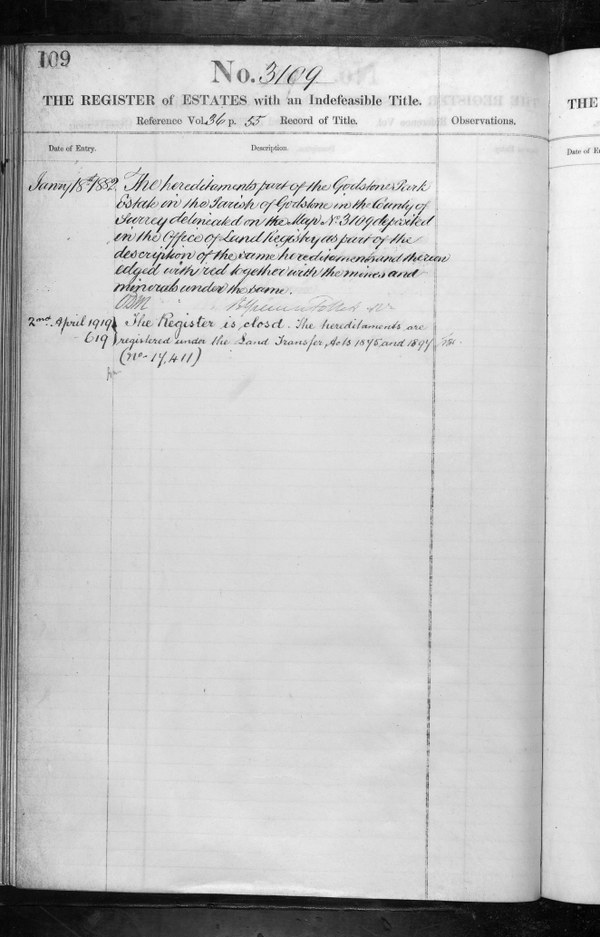 109
No. 3109
THE REGISTER of ESTATES with an Indefeasible Title.
Reference Vol. 36 p. 55 Record of Title.
Observations.
Date of Entry.
Description.
Janry 18th 1882
The hereditaments part of the Godstone Park
Estate in the Parish of Godstone in the County of
Surrey delineated on the Map No. 3109 deposited
in the Office of Land Registry as part of the
description of the same hereditaments and thereon
edged with red together with the mines and
minerals under the same.
2nd April 1919
619
The Register is closd. The hereditaments are
registered under the Land Transfer Acts 1875 and 1897
(No- 17,411)
THE
Date of E